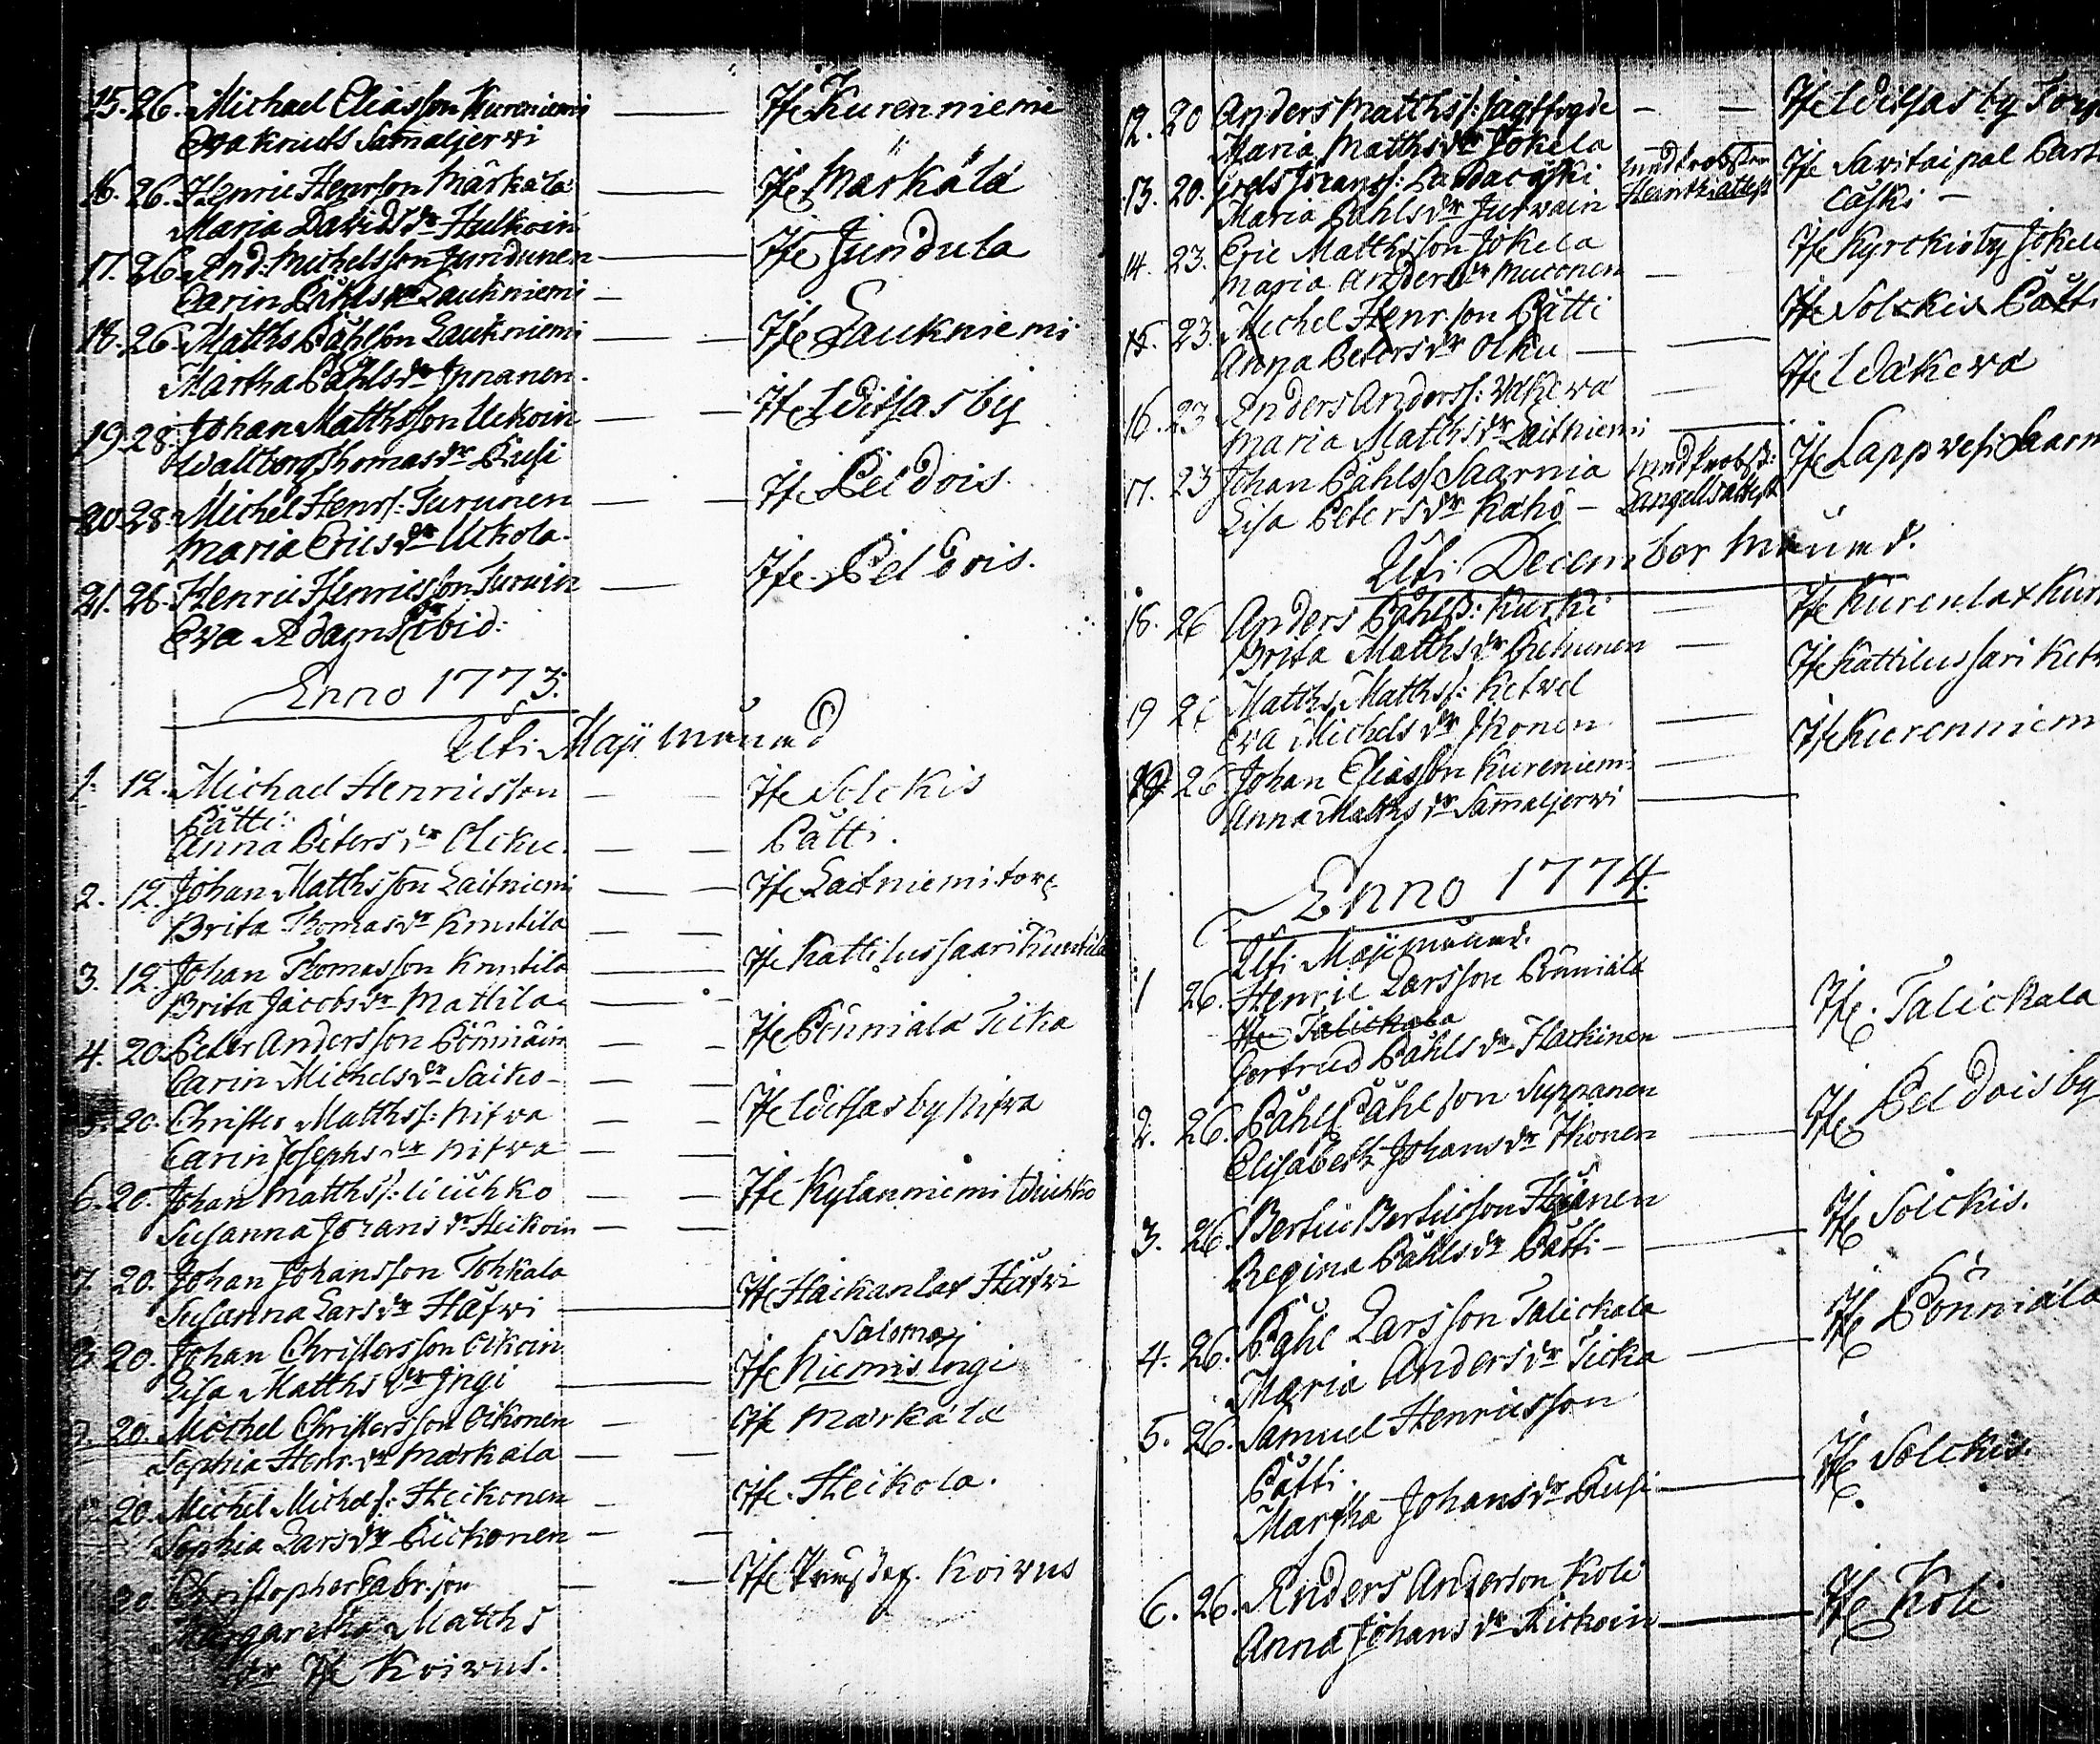 15. 26. Michael Eliasson Kureniemi — Ifr Kurenniemi
Eva Knuts Samaljerwi
16. 26. Henric Henrsson Märkälä — Ifr Märkälä
Maria Davids dr Hulkoin
17. 26. And: Michelsson Jundunen — Ifr Jundula
Carin Påhls dr Laukniemi —
18. 26. Matths Påhlson Laukniemi — — Ifr Laukniemi
Martha Påhls dr Innanen.
19. 28. Johan Matthsson Uckoin — — Ifr Willas by
Wallborg Thomas dr Kusi
20. 28. Michel Henrs: Turunen — — Ifr Peldois.
Maria Erics dr Uckola.
21. 28. Henric Henricsson Turuin — — Ifr Peldois.
Eva Adams dr ibid:
Anno 1773.
Uti Maji månad
1. 12. Michael Henricsson — Ifr Solckis
Pätti. Pätti.
Anna Peters dr Olcku. — —
2. 12. Johan Matthsson Laitniemi — — Ifr Laitniemi torp
Brita Thomas dr Knutila — —
3. 12. Johan Thomasson Knutila — Ifr Kattilussaari Knutila
Brita Jacobs dr Mattila — —
4. 20. Peter Andersson Pönniäin — — Ifr Pönniälä Ticka
Carin Michels dr Saiko — —
5. 20. Christer Matths: Nitva — — Ifr Willas by Nitva
Carin Josephs dr Nitva — —
6. 20. Johan Matths: — — Ifr Kylänniemi
Susanna Jörans dr Heikoin — —
7. 20. Johan Johansson Tohkala
Susanna Lars dr Häfwi — Ifr Haikanlax Häfwi
8. 20. Johan Christersson Oikoin Salomoj
Lisa Matths dr Ingi — Ifr Niemis Ingi
9. 20. Michel Christersson Oikonen — Ifr Märkälä
Sophia Henr. dr Märkälä — —
20. Michel Michels: Heikonen — Ifr. Heikola.
Sophia Lars dr Kuckonen — —
20. Christopher Gabr. son — — Ifr Koivus
Margaretha Matths
dr Ifr Koivus.
12. 20 Anders Matths: Jagtfogde — — Ifr Willas by Torp
Maria Matths dr Jokela
13. 20. Jörans: — Ifr Savitaipal
Maria Påhls dr Jurwain —
14. 23. Eric Matthsson Jokela Ifr Kyrckioby Jokela
Maria Anders dr Mutonen —
15. 23. Michel Henr:son Pätti Ifr Solckis Pätti
Anna Peters dr Olku — —
16. 23 Anders Anders: Wäkevä — Ifr Wäkevä
Maria Matths dr Laitniemi —
17. 23 Johan Påhls: Saarnia Ifr Lappvesi
Lisa Peters dr Kaho —
Uti December månad.
18. 26 Anders Påhls: Kurki — Ifr Kurenlax
Brita Matths dr Rehunen —
19 26 Matths Matths: Ketvel Ifr Kattilussari
Eva Michels dr Ikonen —
26. Johan Eliasson Kureniemi — Ifr Kurenniemi
Anna Matths dr Samaljerwi —
Anno 1774.
Uti Maji månad.
1 26. Henric Larsson Pönniälä
Ifr Talickala Ifr. Talickala
Gertrud Påhls dr Hackinen —
2. 26. Påhl Påhlson Suppanen Ifr Peldois by
Elisabeth Johans dr Ikonen —
3. 26. Bertil Bertilsson Ifr Solckis.
Regina Påhls dr Pätti — —
4. 26. Påhl Larsson Talickala Ifr Pönniälä
Maria Anders dr Ticka —
5. 26. Samuel Henricsson
Pätti. Ifr Solckis.
Martha Johans dr Kusi —
6. 26. Anders Anderson Koli Ifr Koli
Anna Johans dr —